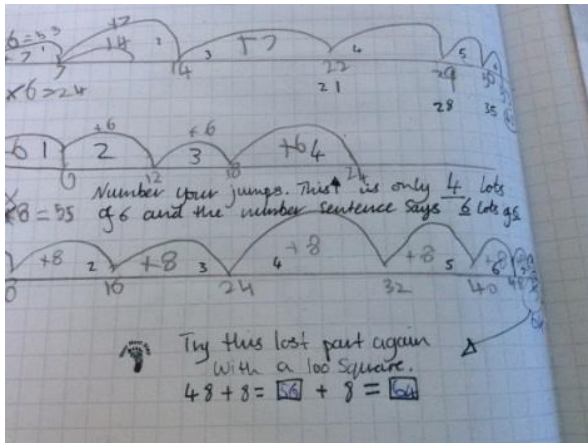 6=53
+7
7 14 2 3 +7 4 5
7 14 22 29
21 28 35
×6=24
+6 +6
6 1 2 3 +6 4
6 12 18 24
Number your jumps. This↑ is only 4 lots
×8=55 of 6 and the number sentence says 6 lots of 6
+8 2 +8 3 4 +8 +8 5 +8 6
8 16 24 32 40 48
Try this last part again
with a 100 square.
48+8= 56 + 8 = 64